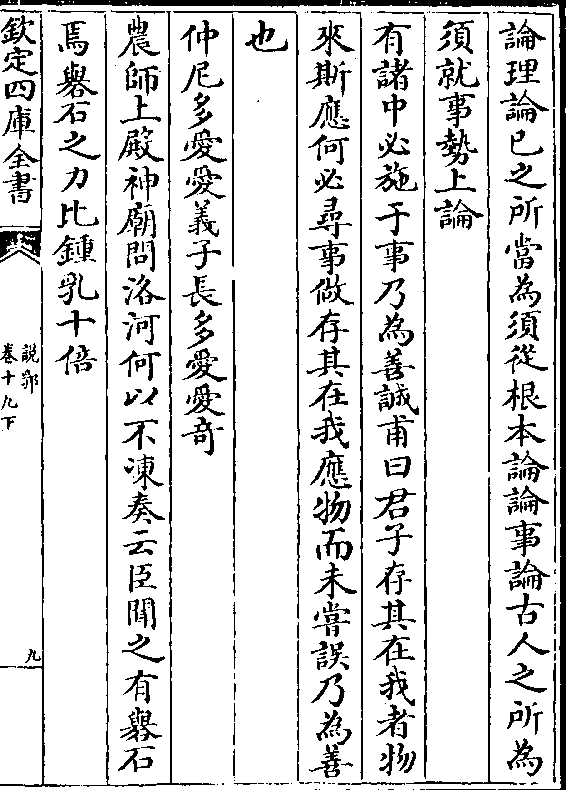 論理論已之所當為須從根本論論事論古人之所為
須就事勢上論
有諸中必施于事乃為善誠甫曰君子存其在我者物
來斯應何必尋事做存其在我應物而未嘗誤乃為善
也
仲尼多愛愛義子長多愛愛奇
農師上殿神廟問洛河何以不凍奏云臣聞之有礜石
焉礜石之力比鍾乳十倍
欽定四庫全書
說郛
卷十九下
九